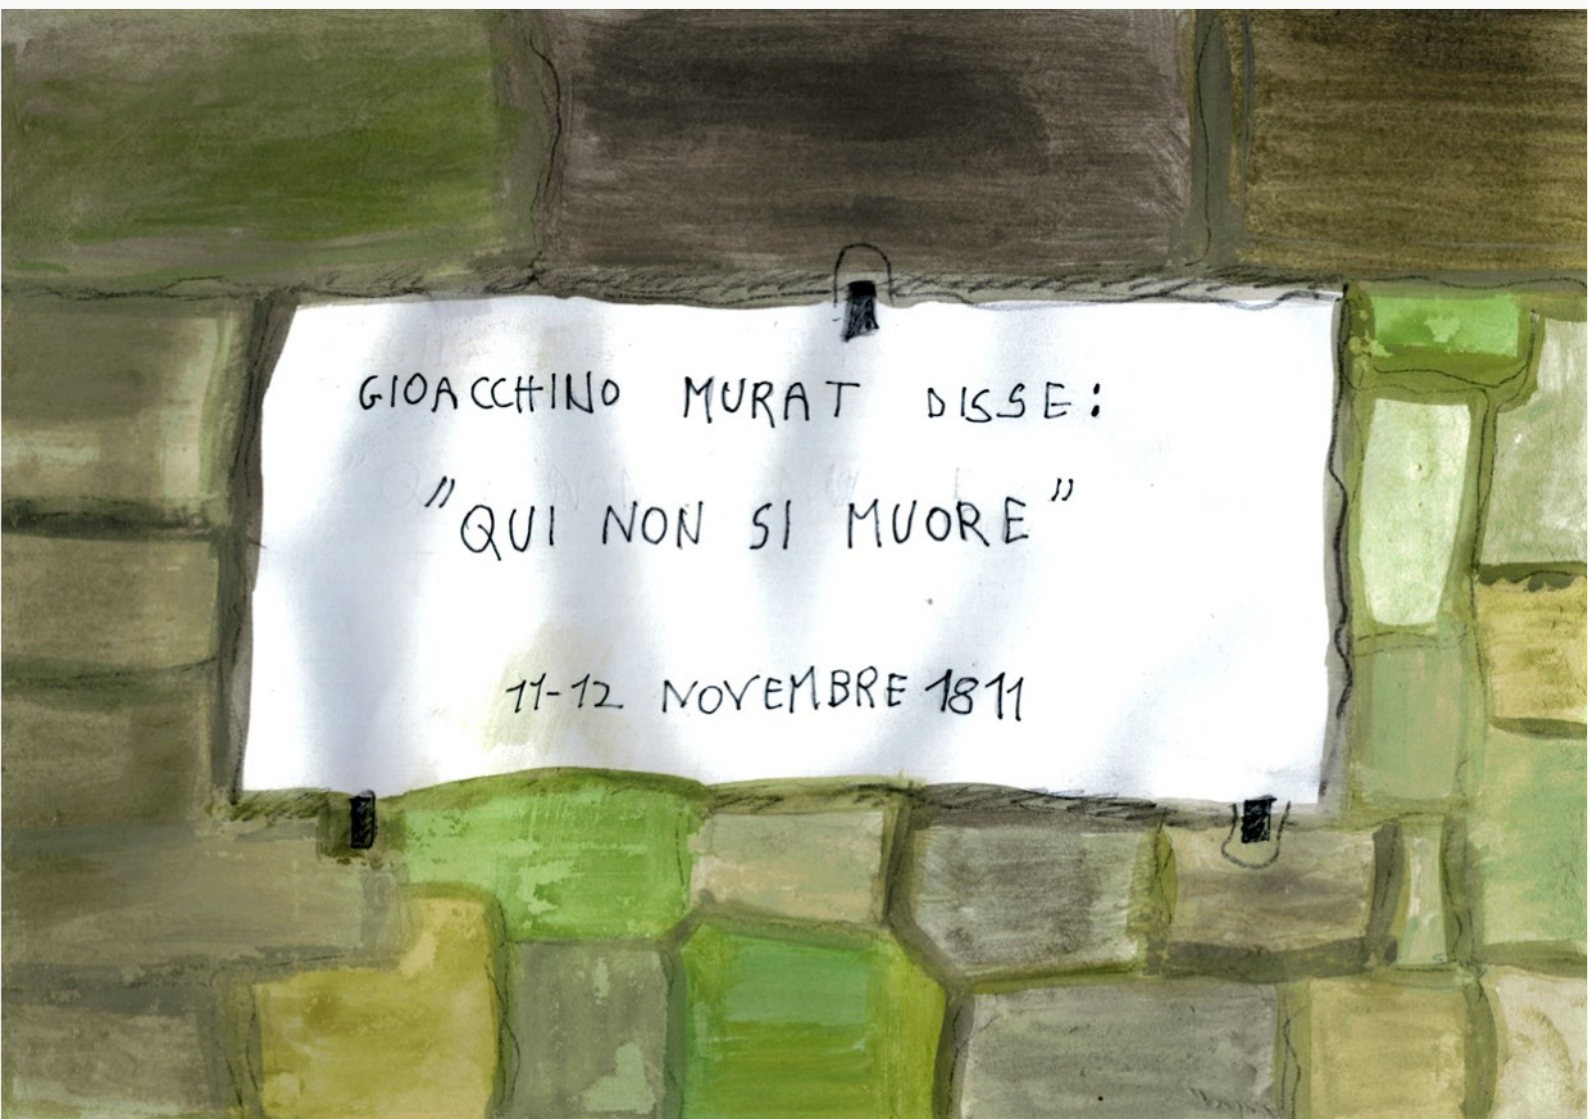 GIOACCHINO MURAT DISSE:
"QUI NON SI MUORE"
11-12 NOVEMBRE 1811